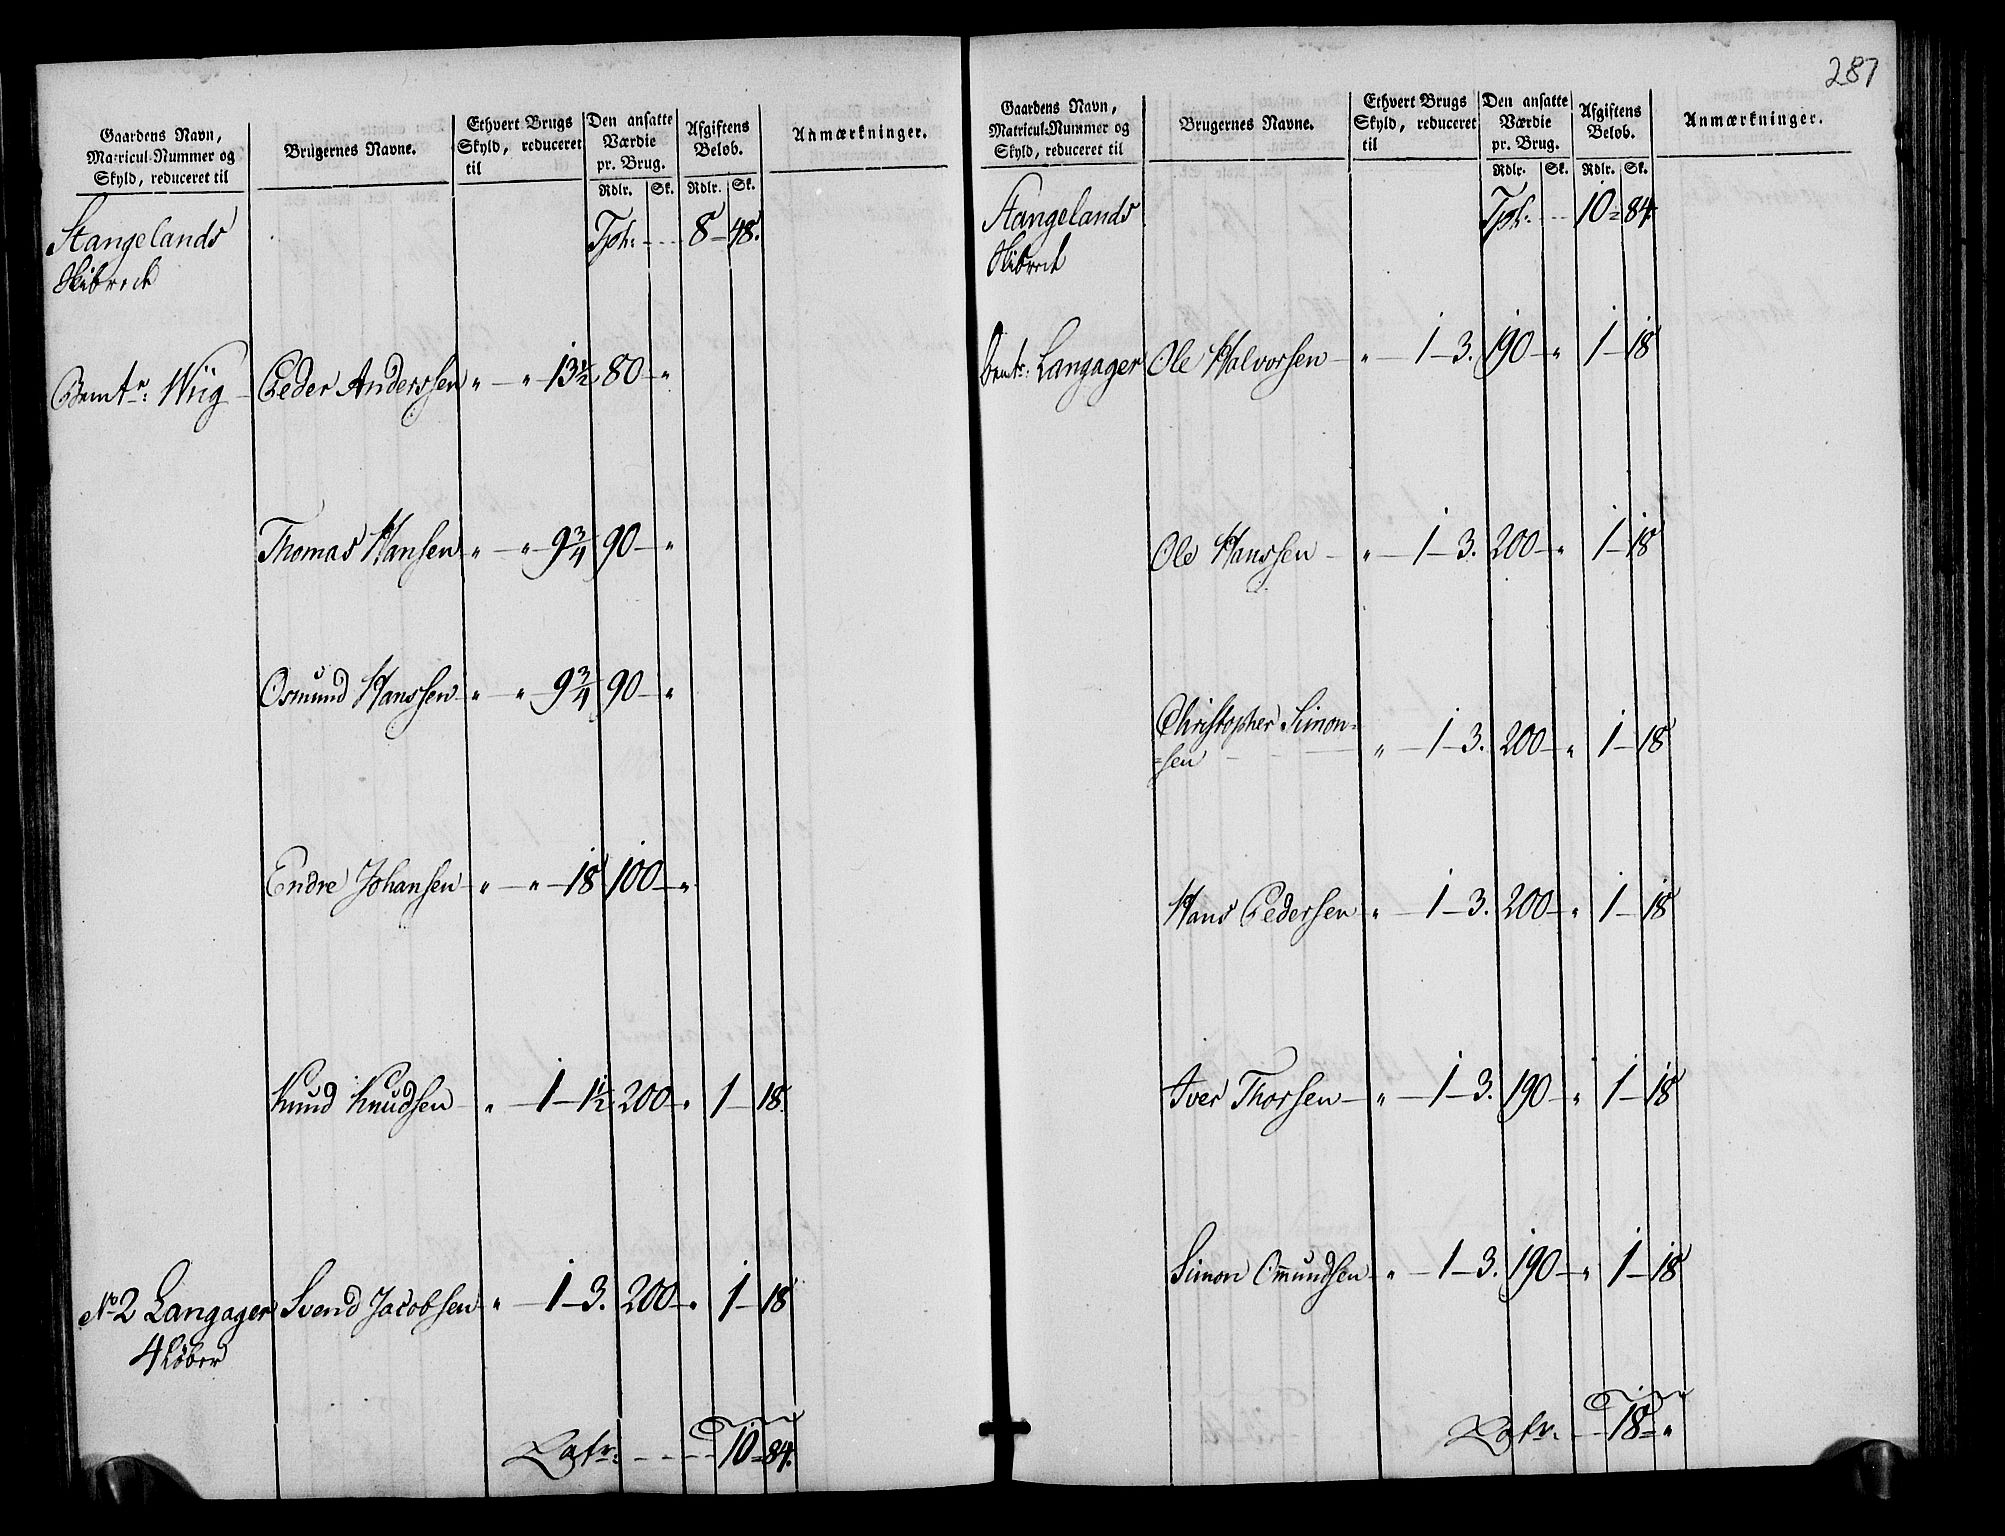 Gaardens Navn,
Matricul-Nummer og
Skyld, reduceret til
Brugernes Navne.
Ethvert Brugs
Skyld, reduceret
til
Den ansatte
Værdie
pr. Brug.
Afgiftens
Beløb.
Anmærkninger.
Rdlr. Sk. Rdlr. Sk.
Stangelands Tph: - - - 8 - 48.
Skibrede
Bemte: Wiig - Peder Anderssen " - " - 13 1/2 80 - "
Thomas Hansen " - " - 9 3/4 90 - "
Osmund Hanssen " - " - 9 3/4 90 - "
Endre Johansen - " - " - 18 100 - "
Knud Knudsen - " - 1 - 1 1/2 200 - " 1 - 18.
No 2 Langager Svend Jacobsen " - 1 - 3. 200 - " 1 - 18
4 Løber
Latr: - - - - 10 = 84.
287
Gaardens Navn,
Matricul-Nummer og
Skyld, reduceret til
Brugernes Navne.
Ethvert Brugs
Skyld, reduceret
til
Den ansatte
Værdie
pr. Brug.
Afgiftens
Beløb.
Anmærkninger.
Rdlr. Sk. Rdlr. Sk.
Stangelands Tph: - - - 10 = 84.
Skibrede
Bemte: Langager Ole Halvorsen - " - 1 - 3. 190 - " 1 - 18
Ole Hanssen - " - 1 - 3. 200 - " 1 - 18
Christopher Simon=
=sen - - - " - 1 - 3. 200 - " 1 - 18
Hans Pedersen - " - 1 - 3. 200 - " 1 - 18
Iver Thorsen - " - 1 - 3. 190 - " 1 - 18
Simon Omundsen - " - 1 - 3. 190 - " 1 - 18
Latr: - - 18 = "